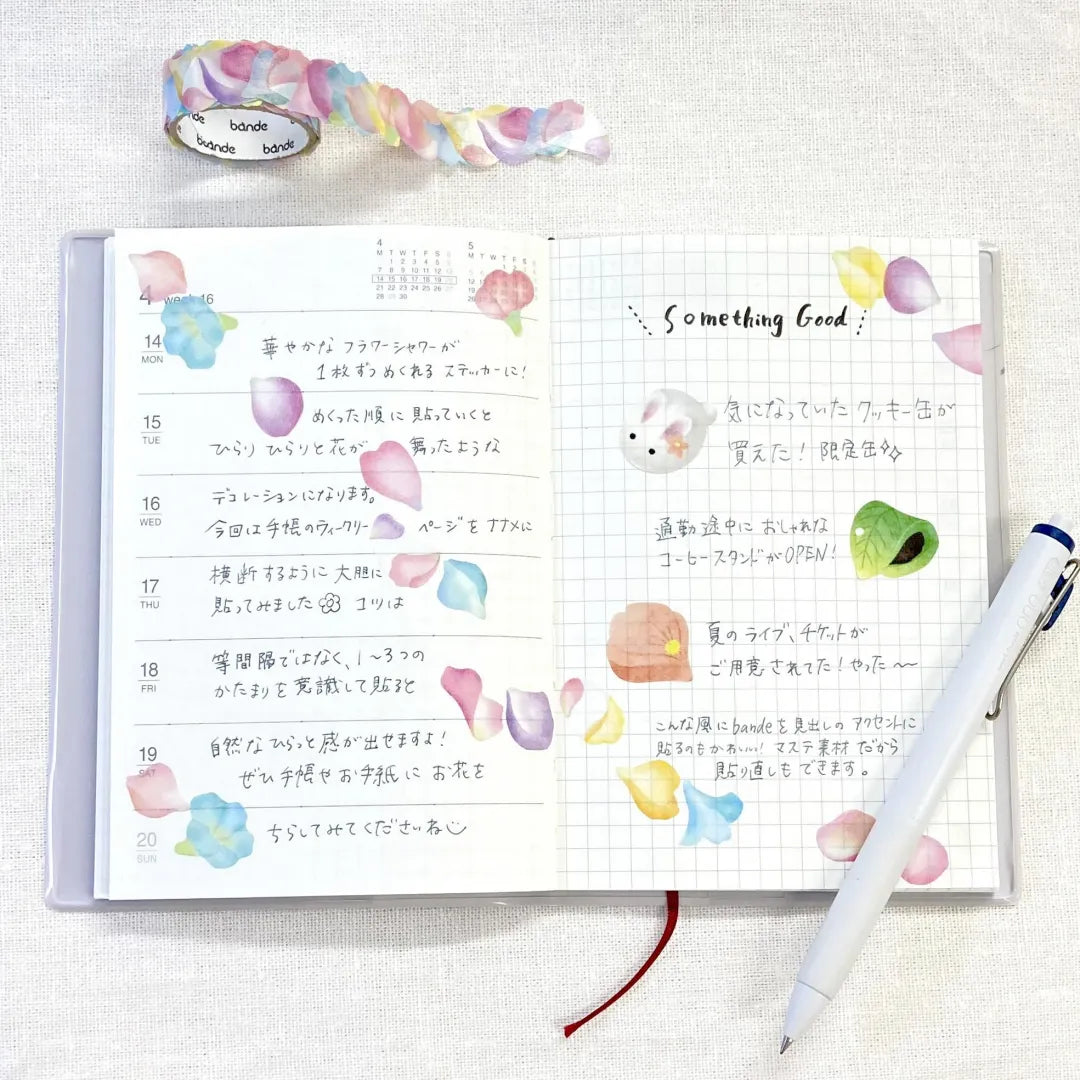 bande
bande
bande
4 week 16
4
M T W T F S S
1 2 3 4 5 6
7 8 9 10 11 12 13
14 15 16 17 18 19 20
21 22 23 24 25 26 27
28 29 30
5
M T W T F S S
14
MON
華やかな フラワーシャワーが
1枚ずつめくれる ステッカーに!
15
TUE
めくった順に 貼っていくと
ひらり ひらりと花が 舞ったような
16
WED
デコレーションになります。
今回は手帳のウィークリー ページを ナナメに
17
THU
横断するように 大胆に
貼ってみました コツは
18
FRI
等間隔ではなく、1〜3つの
かたまりを 意識して貼ると
19
SAT
自然なひらっと感が出せますよ!
ぜひ手帳やお手紙に お花を
20
SUN
ちらしてみてくださいね
Something Good
気になっていた クッキー缶が
買えた! 限定缶
通勤途中に おしゃれな
コーヒースタンドがOPEN!
夏のライブ、チケットが
ご用意されてた! やった〜〜
こんな風にbandeを見出しの アクセントに
貼るのもかわいい! マステ素材だから
貼り直しも できます。
uno